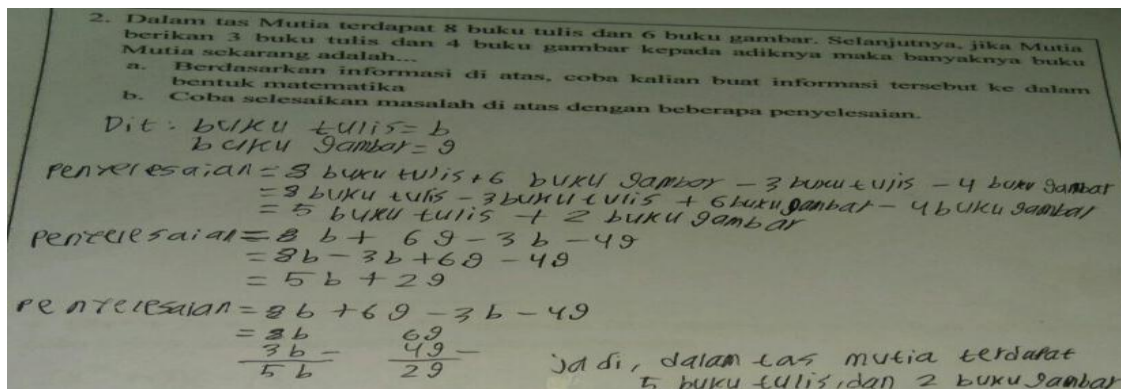 2. Dalam tas Mutia terdapat 8 buku tulis dan 6 buku gambar. Selanjutnya, jika Mutia
berikan 3 buku tulis dan 4 buku gambar kepada adiknya maka banyaknya buku
Mutia sekarang adalah...
a. Berdasarkan informasi di atas, coba kalian buat informasi tersebut ke dalam
bentuk matematika
b. Coba selesaikan masalah di atas dengan beberapa penyelesaian.
Dit : buku tulis = b
buku gambar = g
Penyelesaian = 8 buku tulis + 6 buku gambar - 3 buku tulis - 4 buku gambar
= 8 buku tulis - 3 buku tulis + 6 buku gambar - 4 buku gambar
= 5 buku tulis + 2 buku gambar
Penyelesaian = 8 b + 6 g - 3 b - 4 g
= 8b - 3b + 6g - 4g
= 5 b + 2 g
Penyelesaian = 8 b + 6 g - 3 b - 4 g
= 8 b 6 g
3 b - 4 g -
5 b 2 g
Jadi, dalam tas mutia terdapat
5 buku tulis, dan 2 buku gambar